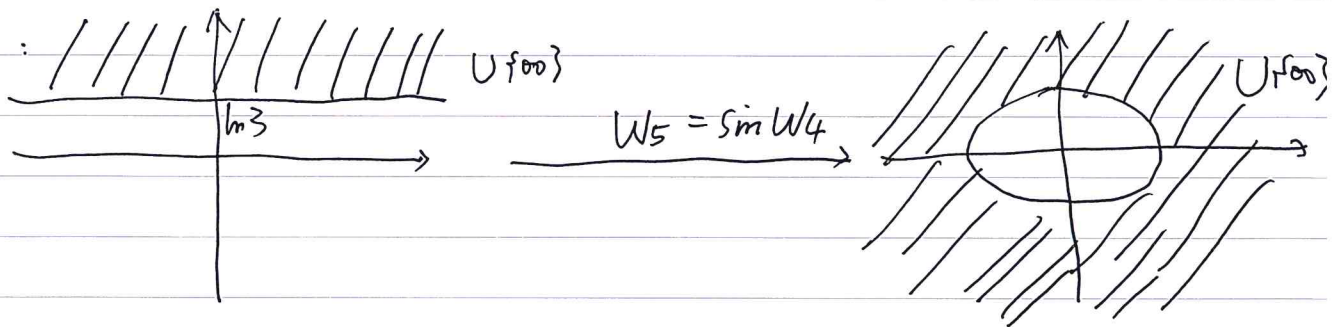 :
U{∞}
ln3
W5 = Sin W4
U{∞}